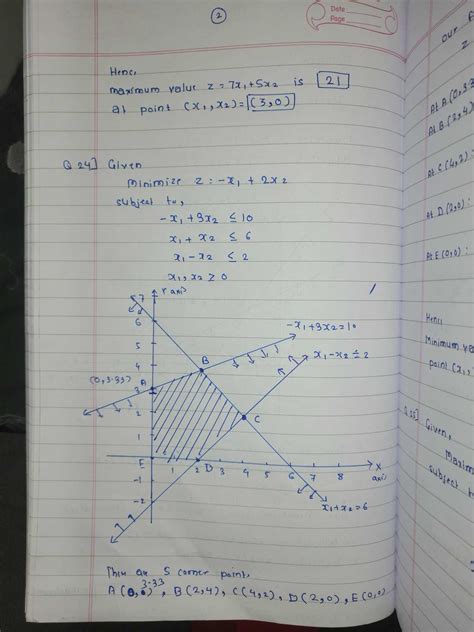 Date
Page
2
Hence,
maximum value z = 7x₁+5x₂ is 21
at point (x₁, x₂) = (3,0)
Q.24] Given
Minimize z = -x₁ + 2x₂
subject to,
-x₁+3x₂ ≤ 10
x₁+ x₂ ≤ 6
x₁-x₂ ≤ 2
x₁,x₂ ≥ 0
Y axis
7
6
5
4
3
2
1
-1
-2
(0,3.33)
A
B
C
D
E
-x₁+3x₂=10
x₁-x₂ ≤ 2
1 2 3 4 5 6 7 8
X
axis
x₁+x₂=6
5 corner point,
3.33
A(0, ), B(2,4), C(4,2), D(2,0), E(0,0)
our
At A(0,3.3
At B(2,4)
At C(4,2):
At D(2,0):
At E(0,0):
Hence
Minimum va
point (x₁,
Q.25] Given,
Maxim
subject to